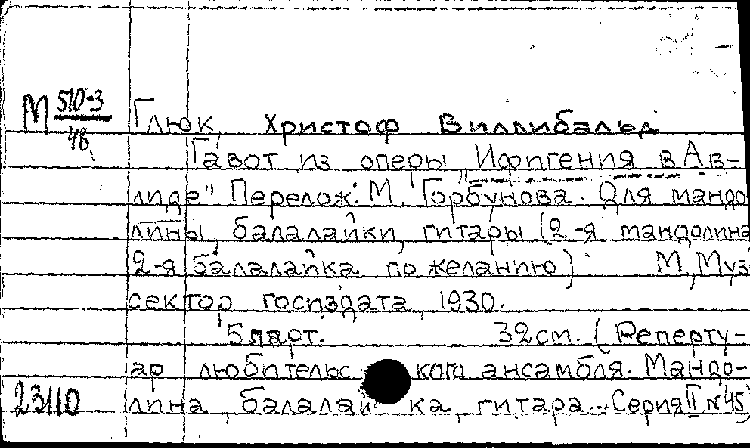 М 510-3/48 Глюк, Христоф Виллибальд
Гавот из оперы „Ифигения в Ав-
лиде" Перелож. М. Горбунова. Для мандо
лины, балалайки, гитары (2-я мандолина
2-я балалайка по желанию) М, Муз
сектор госиздата, 1930.
5 парт. 32 см. (Реперту-
ар любительс кого ансамбля. Мандо-
23110 лина, балалай ка, гитара. Серия II № 45)